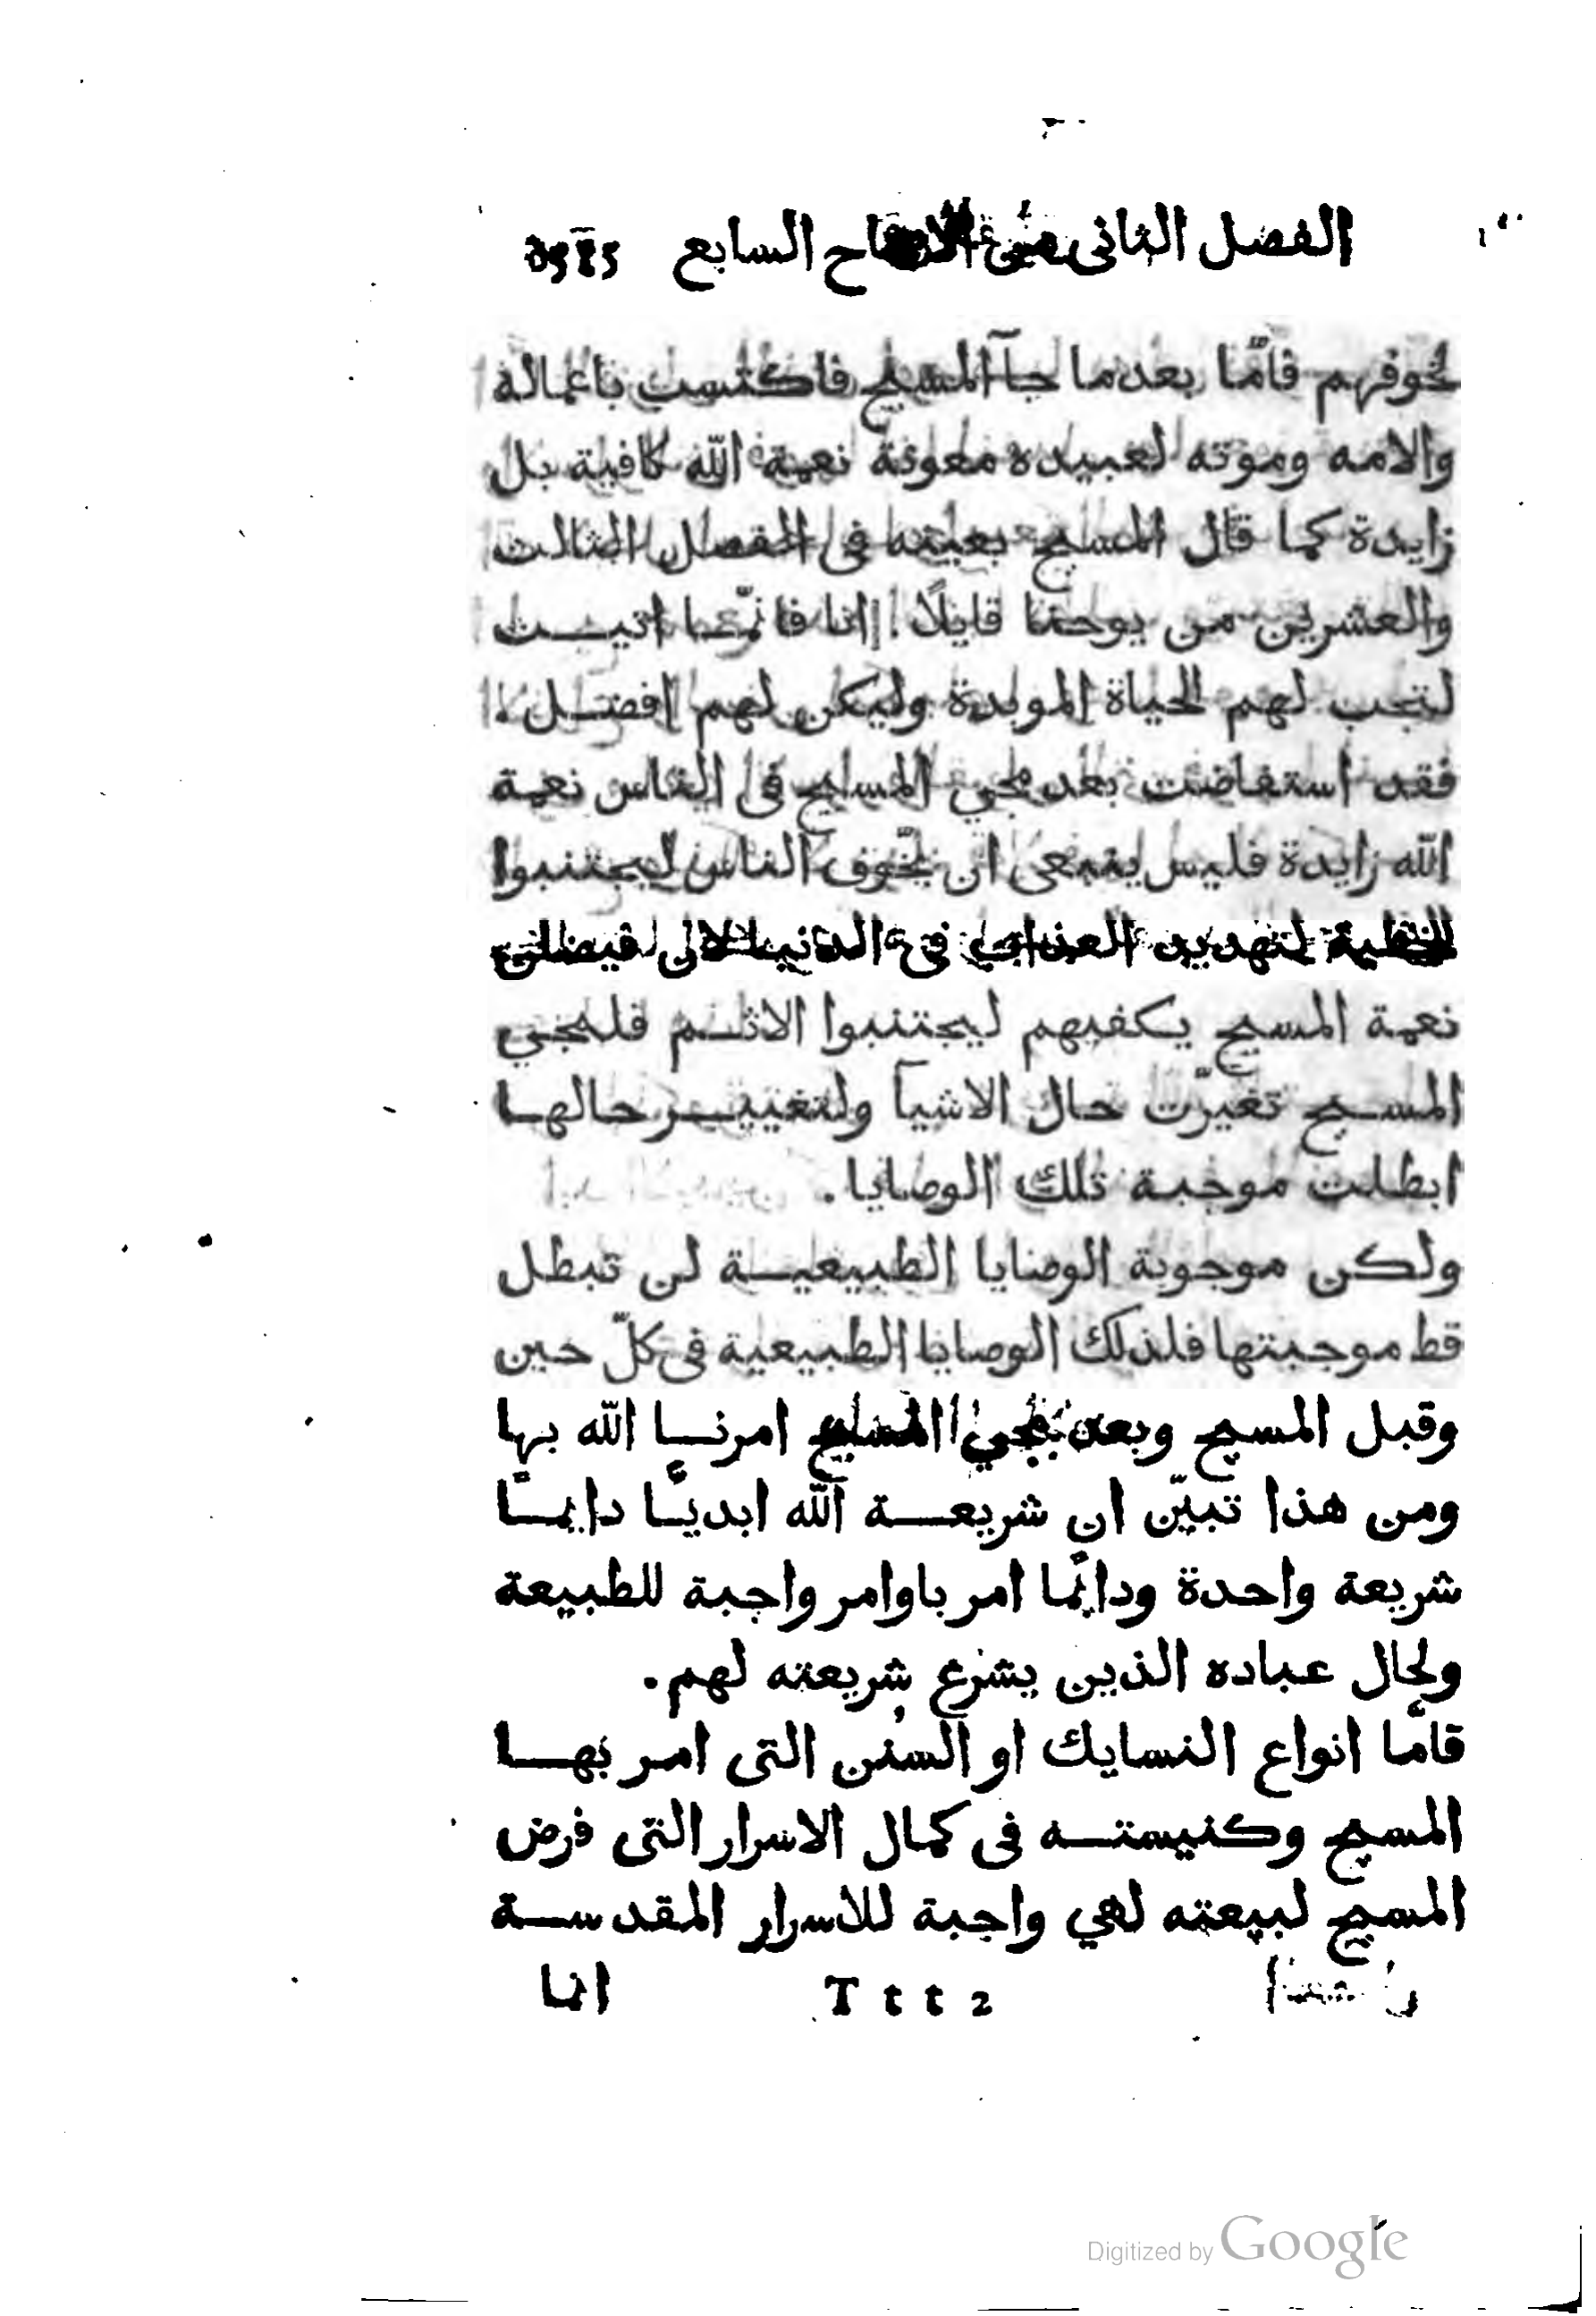 الفصل الثانى من السابع
لخوفهم فامّا بعد ما جآ المسيح فاكتسب باعماله
والامه وموته لعبيده معونة نعمة اللّه كافية بل
زايدة كما قال المسيح بعينه فى الفصل الثالث
والعشرين من يوحنا قايلًا انا فانّما اتيت
لتجب لهم الحياة الموبدة وليكن لهم افضل
فقد استفاضت بعد مجي المسيح فى الناس نعمة
اللّه زايدة فليس ينبعى ان يخّوف الناس ليجتنبوا
الخطية لتهديد العذاب فى الدنيا لان
نعمة المسيح يكفيهم ليجتنبوا الاثم فلمجي
المسيح تغيّرت حال الاشيآ ولتغيير حالها
ابطلت موجبة تلك الوصايا .
ولكن موجوبة الوصايا الطبيعية لن تبطل
قط موجبتها فلذلك الوصايا الطبيعية فى كلّ حين
وقبل المسيح وبعد مجي المسيح امرنا اللّه بها
ومن هذا تبيّن ان شريعة اللّه ابديًّا دايمًا
شريعة واحدة ودايمًا امر باوامر واجبة للطبيعة
ولحال عباده الذين يشرع شريعته لهم .
قامّا انواع النسايك او السُنن التى امر بها
المسيح وكنيسته فى كمال الاسرار التى فرض
المسيح لبيعته لهي واجبة للاسرار المقدسة
Tttt2 انما
Digitized by Google